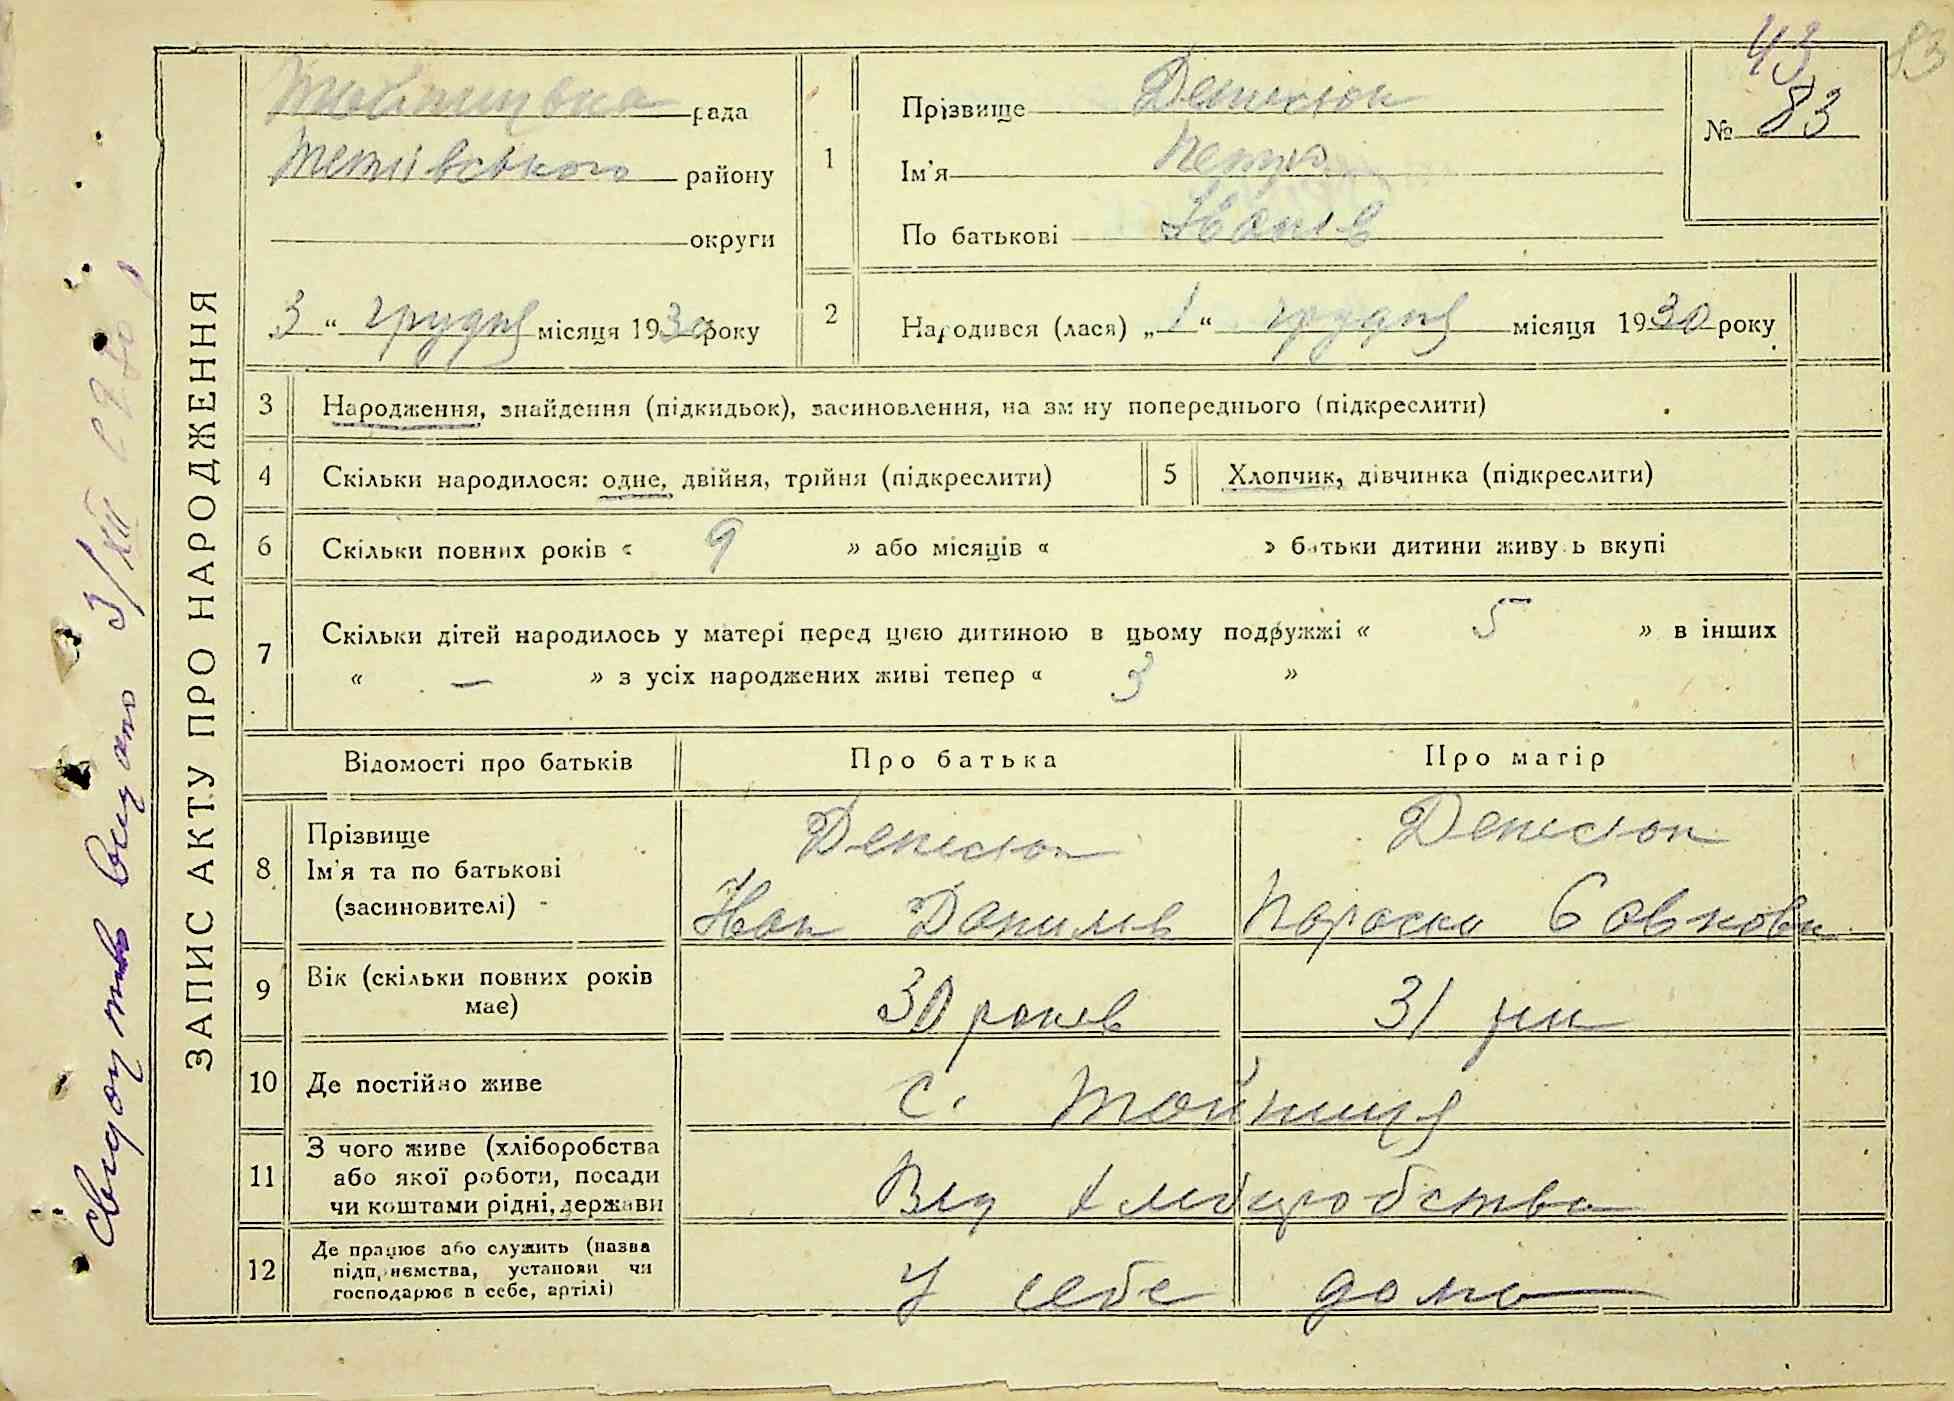 43
83
83
рада
Тетіївського району
округи
3 “ грудня місяця 1930 року
1
Прізвище Денисюк
Ім'я Петро
По батькові Іванів
№ 83
2
Народився (лася) „ 1 “ грудня місяця 1930 року
ЗАПИС АКТУ ПРО НАРОДЖЕННЯ
Свидотство видано 3/XII 1930 р
3 Народження, знайдення (підкидьок), засиновлення, на зм ну попереднього (підкреслити)
4 Скільки народилося: одне, двійня, трійня (підкреслити)
5 Хлопчик, дівчинка (підкреслити)
6 Скільки повних років « 9 » або місяців « » батьки дитини живу ь вкупі
7 Скільки дітей народилось у матері перед цією дитиною в цьому подружжі « 5 » в інших
« — » з усіх народжених живі тепер « 3 »
Відомості про батьків Про батька Про матір
8 Прізвище
Ім'я та по батькові
(засиновителі)
Денисюк
Іван Данилів
Денисюк
Параска Савкова
9 Вік (скільки повних років
має)
30 років
31 рік
10 Де постійно живе
с. Тайниця
11 З чого живе (хліборобства
або якої роботи, посади
чи коштами рідні, держави
Від хліборобства
12 Де працює або служить (назва
підприємства, установи чи
господарює в себе, артілі)
У себе дома